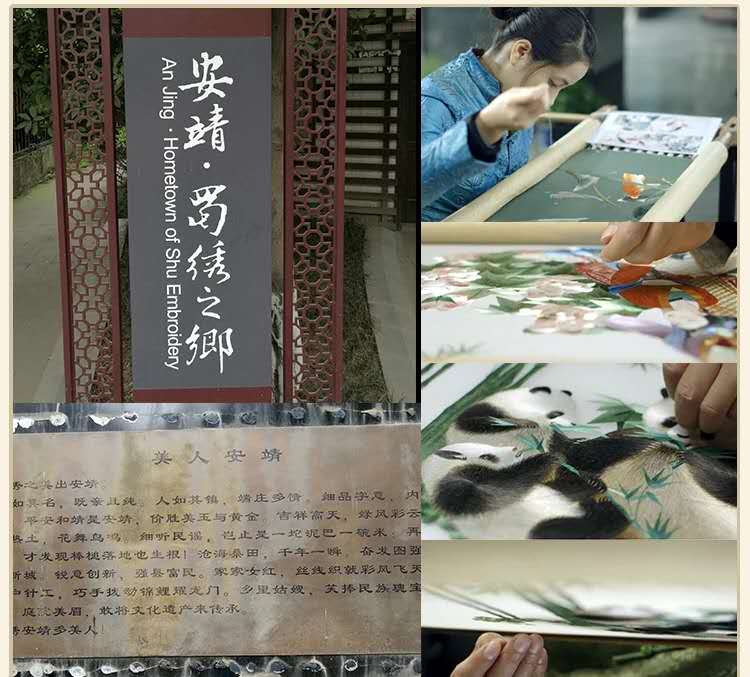 安靖·蜀绣之鄉
An Jing · Hometown of Shu Embroidery
美人安靖
秀之美出安靖。
如其名，既亲且纯。人如其镇，端庄多情。细品字意，内
平安和靖是安靖，价胜美玉与黄金。吉祥高天，绿风彩云
土，花舞鸟鸣，细听民谣，岂止是一坨泥巴一碗米；再
才发现棒槌落地也生根！沧海桑田，千年一瞬，奋发图强
新城！锐意创新，强县富民。家家女红，丝线织就彩凤飞天
中针工，巧手拨动锦鲤耀龙门。乡里姑嫂，笑捧民族瑰宝
庭院美眉，敢将文化遗产来传承。
安靖多美人！